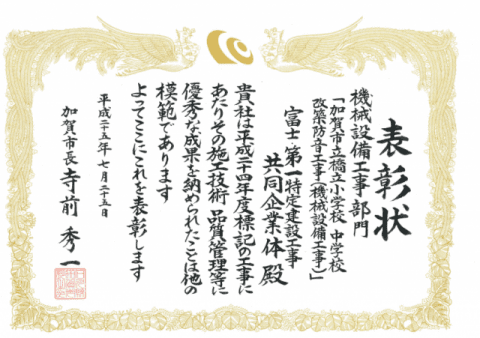 表彰状
機械設備工事部門
「加賀市立橋立小学校 中学校
改築防音工事(機械設備工事)」
富士・第一特定建設工事
共同企業体殿
貴社は平成二四年度標記の工事に
あたりその施工技術 品質管理等に
優秀な成果を納められたことは他の
模範であります
よってここにこれを表彰します
平成二十五年七月二十五日
加賀市長 寺前秀一